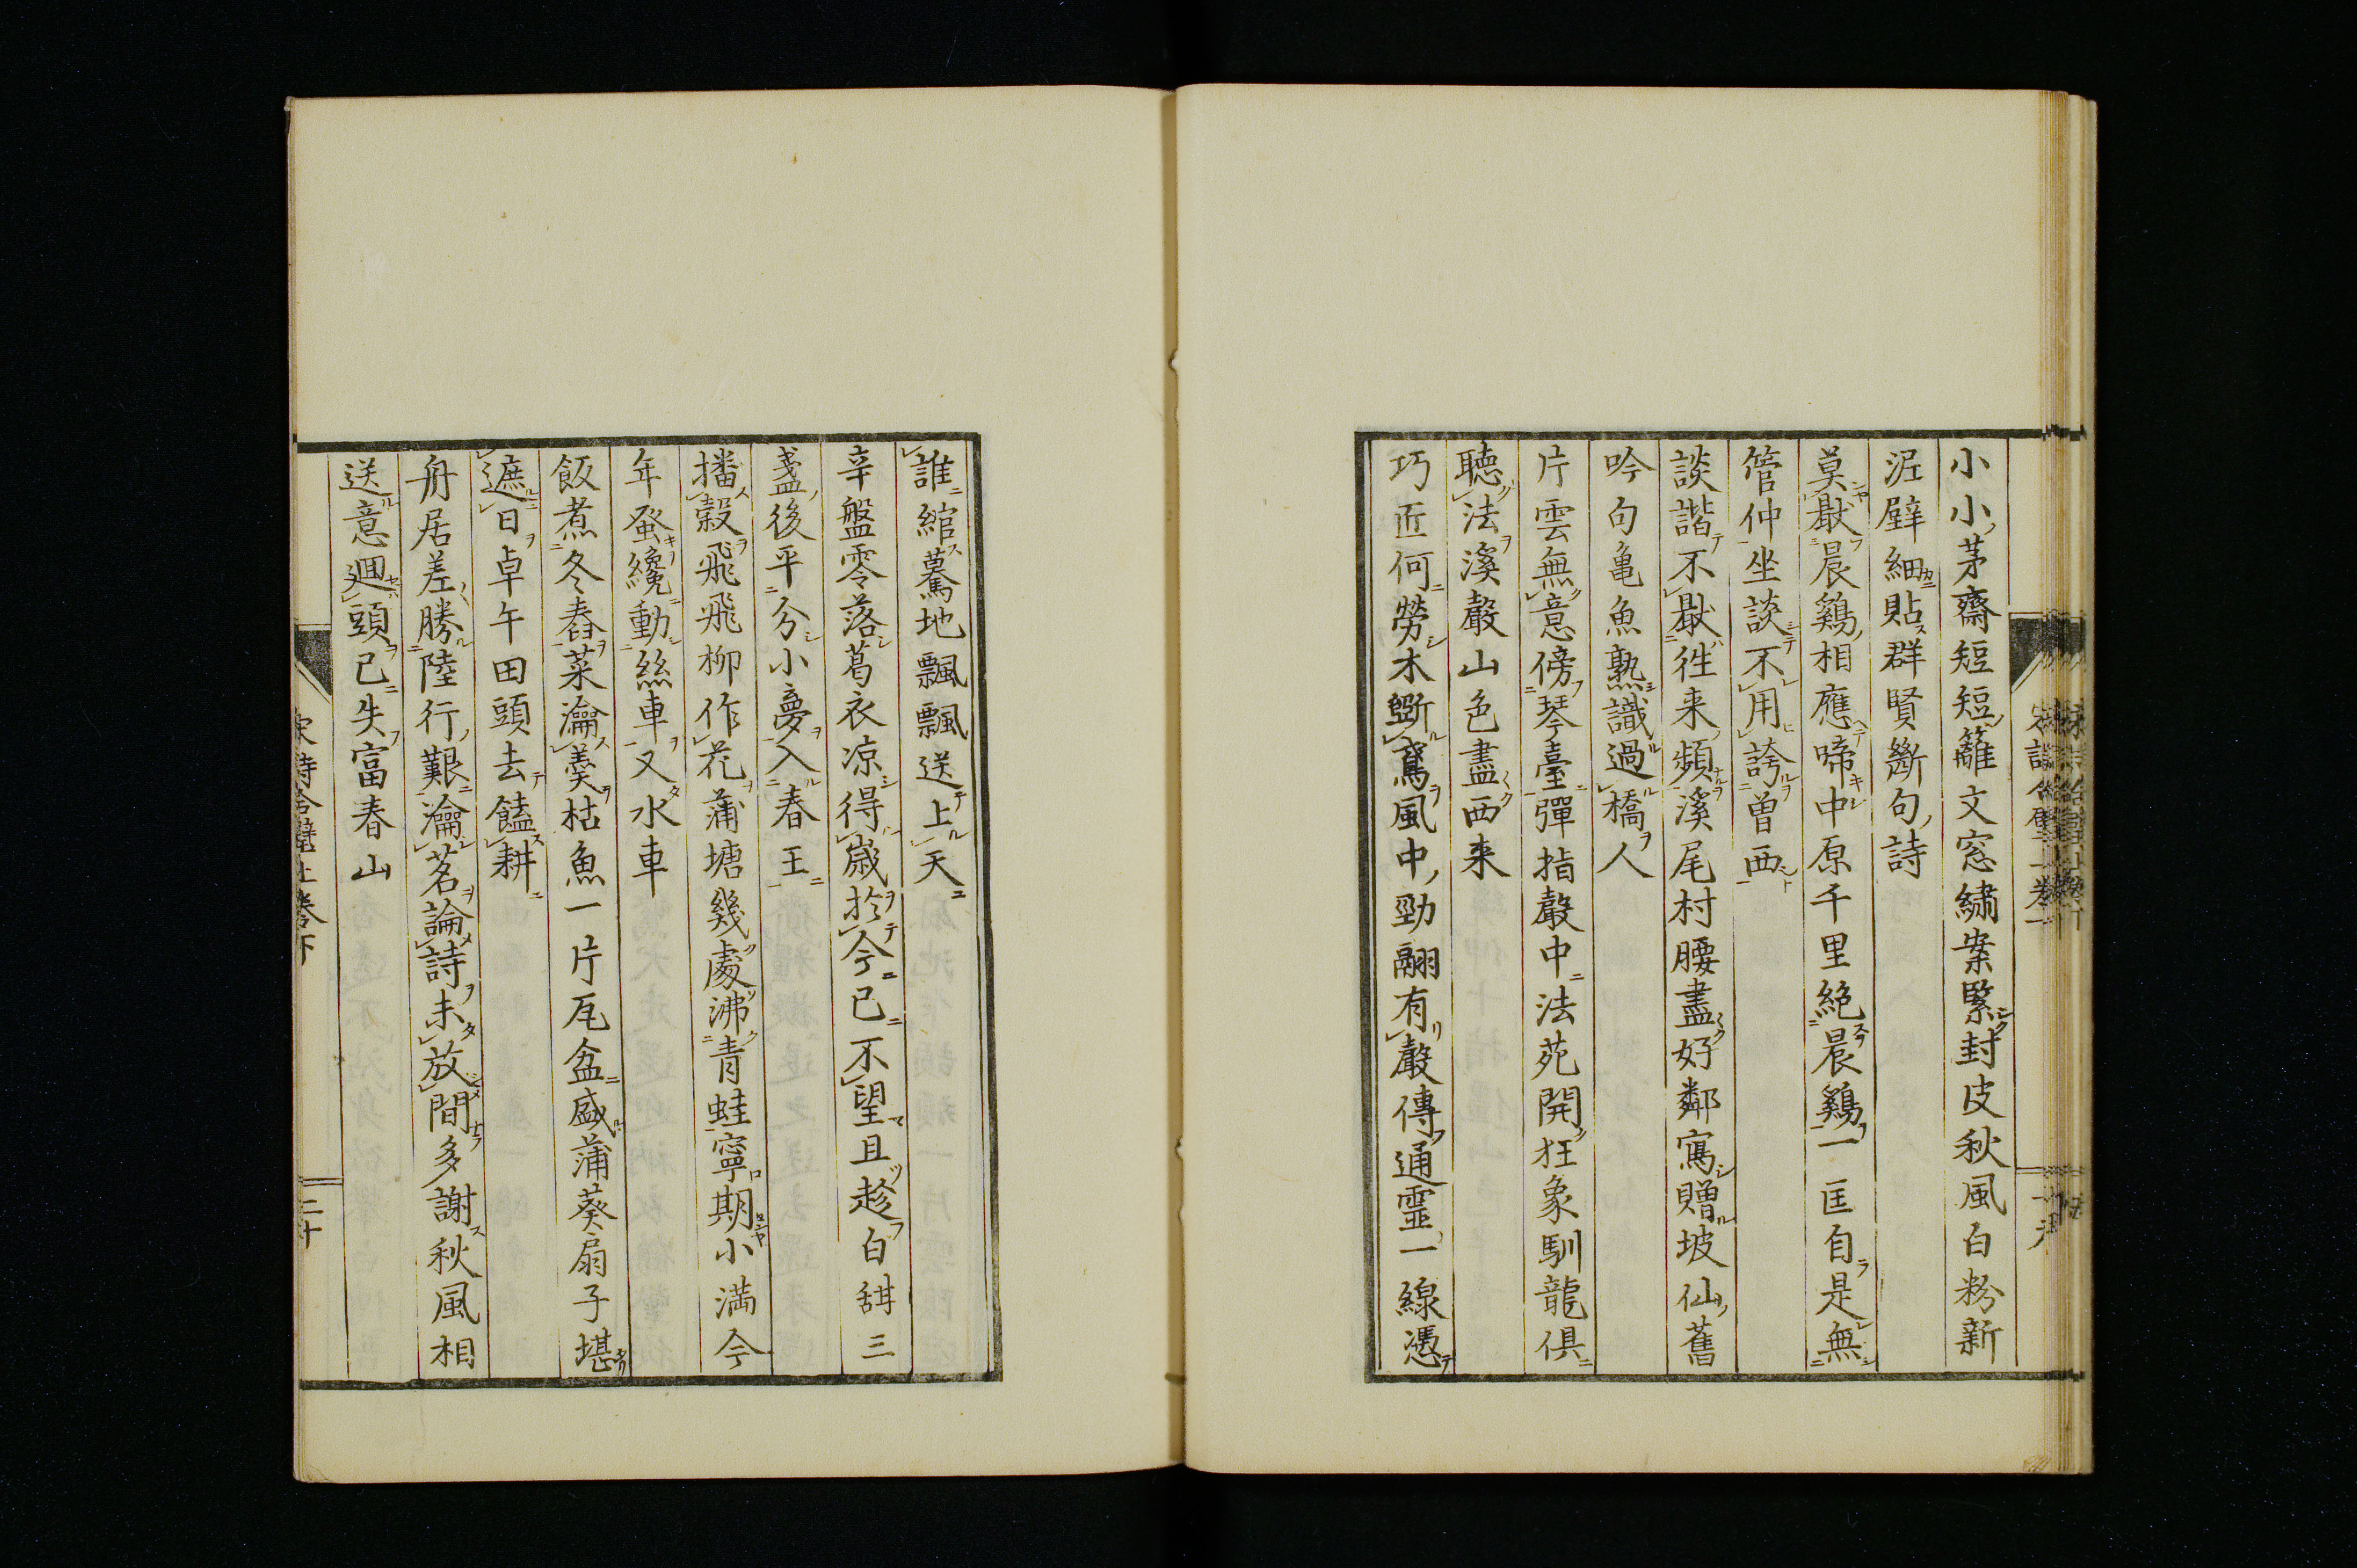 小小茅齋短短籬文窓繡案緊封皮秋風白粉新
泥壁細貼群賢斷句詩
莫猒晨鷄相應啼中原千里絶晨鷄一匡自是無
管仲坐談不用誇曽西
談諧不猒徃来頻溪尾村腰盡好鄰寫贈坡仙舊
吟句亀魚熟識過橋人
片雲無意傍琴臺彈指聲中法苑開狂象馴龍俱
聽法溪聲山色盡西来
巧匠何勞木斵鳶風中勁翮有聲傳通靈一線憑
誰綰驀地飄飄送上天
辛盤零落葛衣凉得歳於今已不望且趁白甜三
盞後平分小夢入春王
播穀飛飛柳作花蒲塘幾處沸青蛙寧期小満今
年蚕纔動絲車又水車
飯煮冬舂菜瀹羮枯魚一片瓦盆盛蒲葵扇子堪
遮日卓午田頭去饁耕
舟居差勝陸行艱瀹茗論詩未放間多謝秋風相
送意迴頭已失富春山
二十